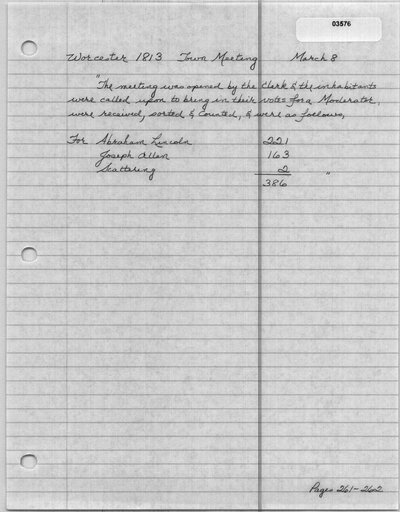 03576
Worcester 1813 Town Meeting March 8
"The meeting was opened by the Clerk & the inhabitants
were called upon to bring in their votes for a Moderator,
were received, sorted & counted, & were as follows,
For Abraham Lincoln 221
Joseph Allen 163
Scattering 2 "
386
Pages 261-262